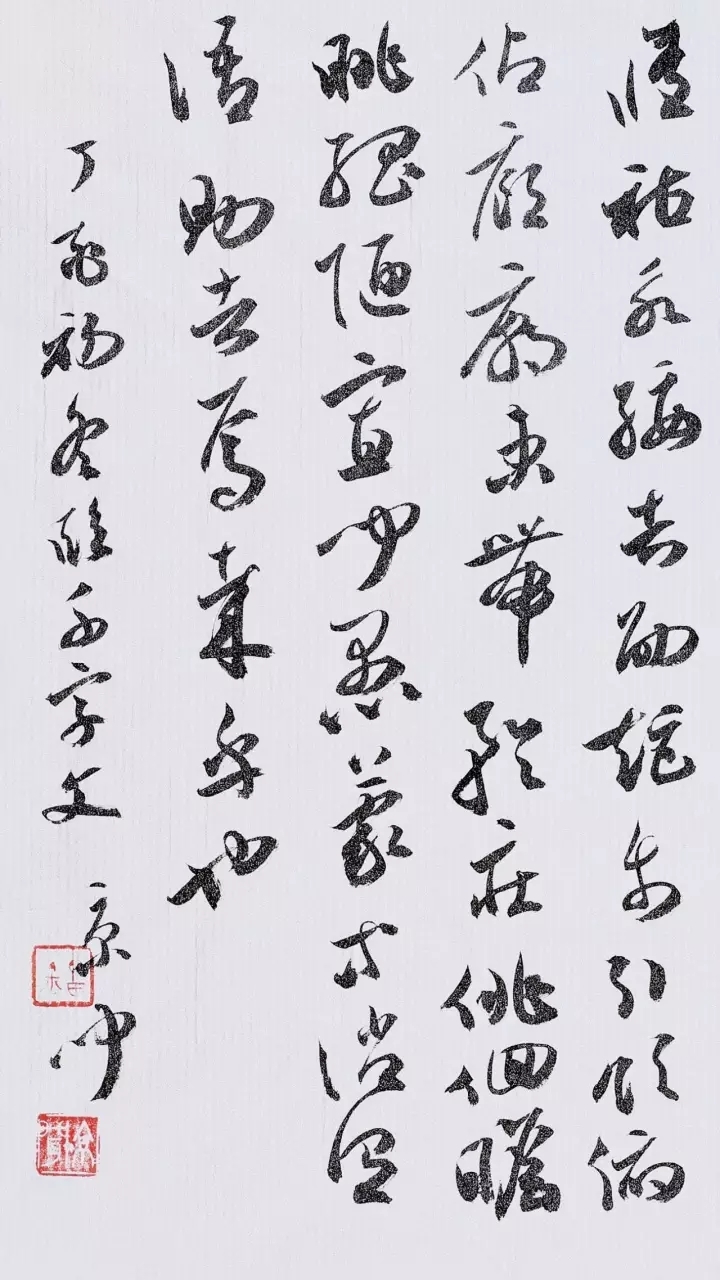 脩祜永綏吉劭矩步引領俯
仰廊廟束帶矜莊徘徊瞻
眺孤陋寡聞愚蒙等誚謂
語助者焉哉乎也
丁初冬臨千字文